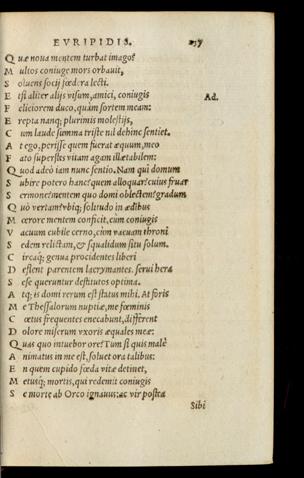 EVRIPIDIS.
Q uæ noua mentem turbat imago?
M ultos coniuge mors orbauit,
S oluens socij fœdera lecti.
E tsi aliter alijs visum, amici, coniugis
Ad.
F eliciorem duco, quàm sortem meam:
E repta nanq; plurimis molestijs,
C um laude summa triste nil dehinc sentiet.
A t ego, perisse quem fuerat æquum, meo
F ato superstes vitam agam illætabilem:
Q uod adeò iam nunc sentio. Nam qui domum
S ubire potero hanc? quem alloquar? cuius fruar
S ermone? mentem quo domi oblectem? gradum
Q uò vertam? vbiq; solitudo in ædibus
M œrore mentem conficit, cùm coniugis
V acuum cubile cerno, cùm vacuam throni
S edem relictam, & squalidum situ solum.
C ircaq; genua procidentes liberi
D eflent parentem lacrymantes. serui hera
S ese queruntur destitutos optima.
A tq; is domi rerum est status mihi. At foris
M e Thessalorum nuptiæ, me fœminum
C œtus frequentes enecabunt, different
D olore miserum vxoris æquales meæ:
Q uas quo intuebor ore? Tum si quis malè
A nimatus in me est, soluet ora talibus:
E n quem cupido fœda vitæ detinet,
M etusq; mortis, qui redemit coniugis
S e morte ab Orco ignauus: ac vir postea
Sibi